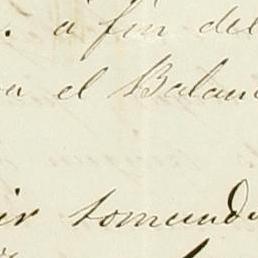 . a fin del
a el Balan
ir tomand